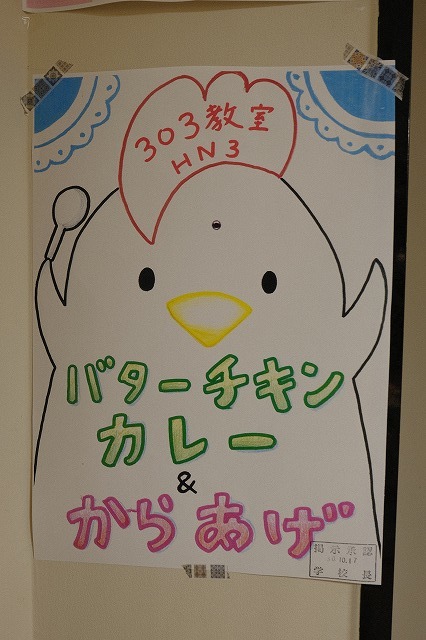 303教室
HN3
バターチキン
カレー
&
からあげ
掲示承認
10.17
学校長